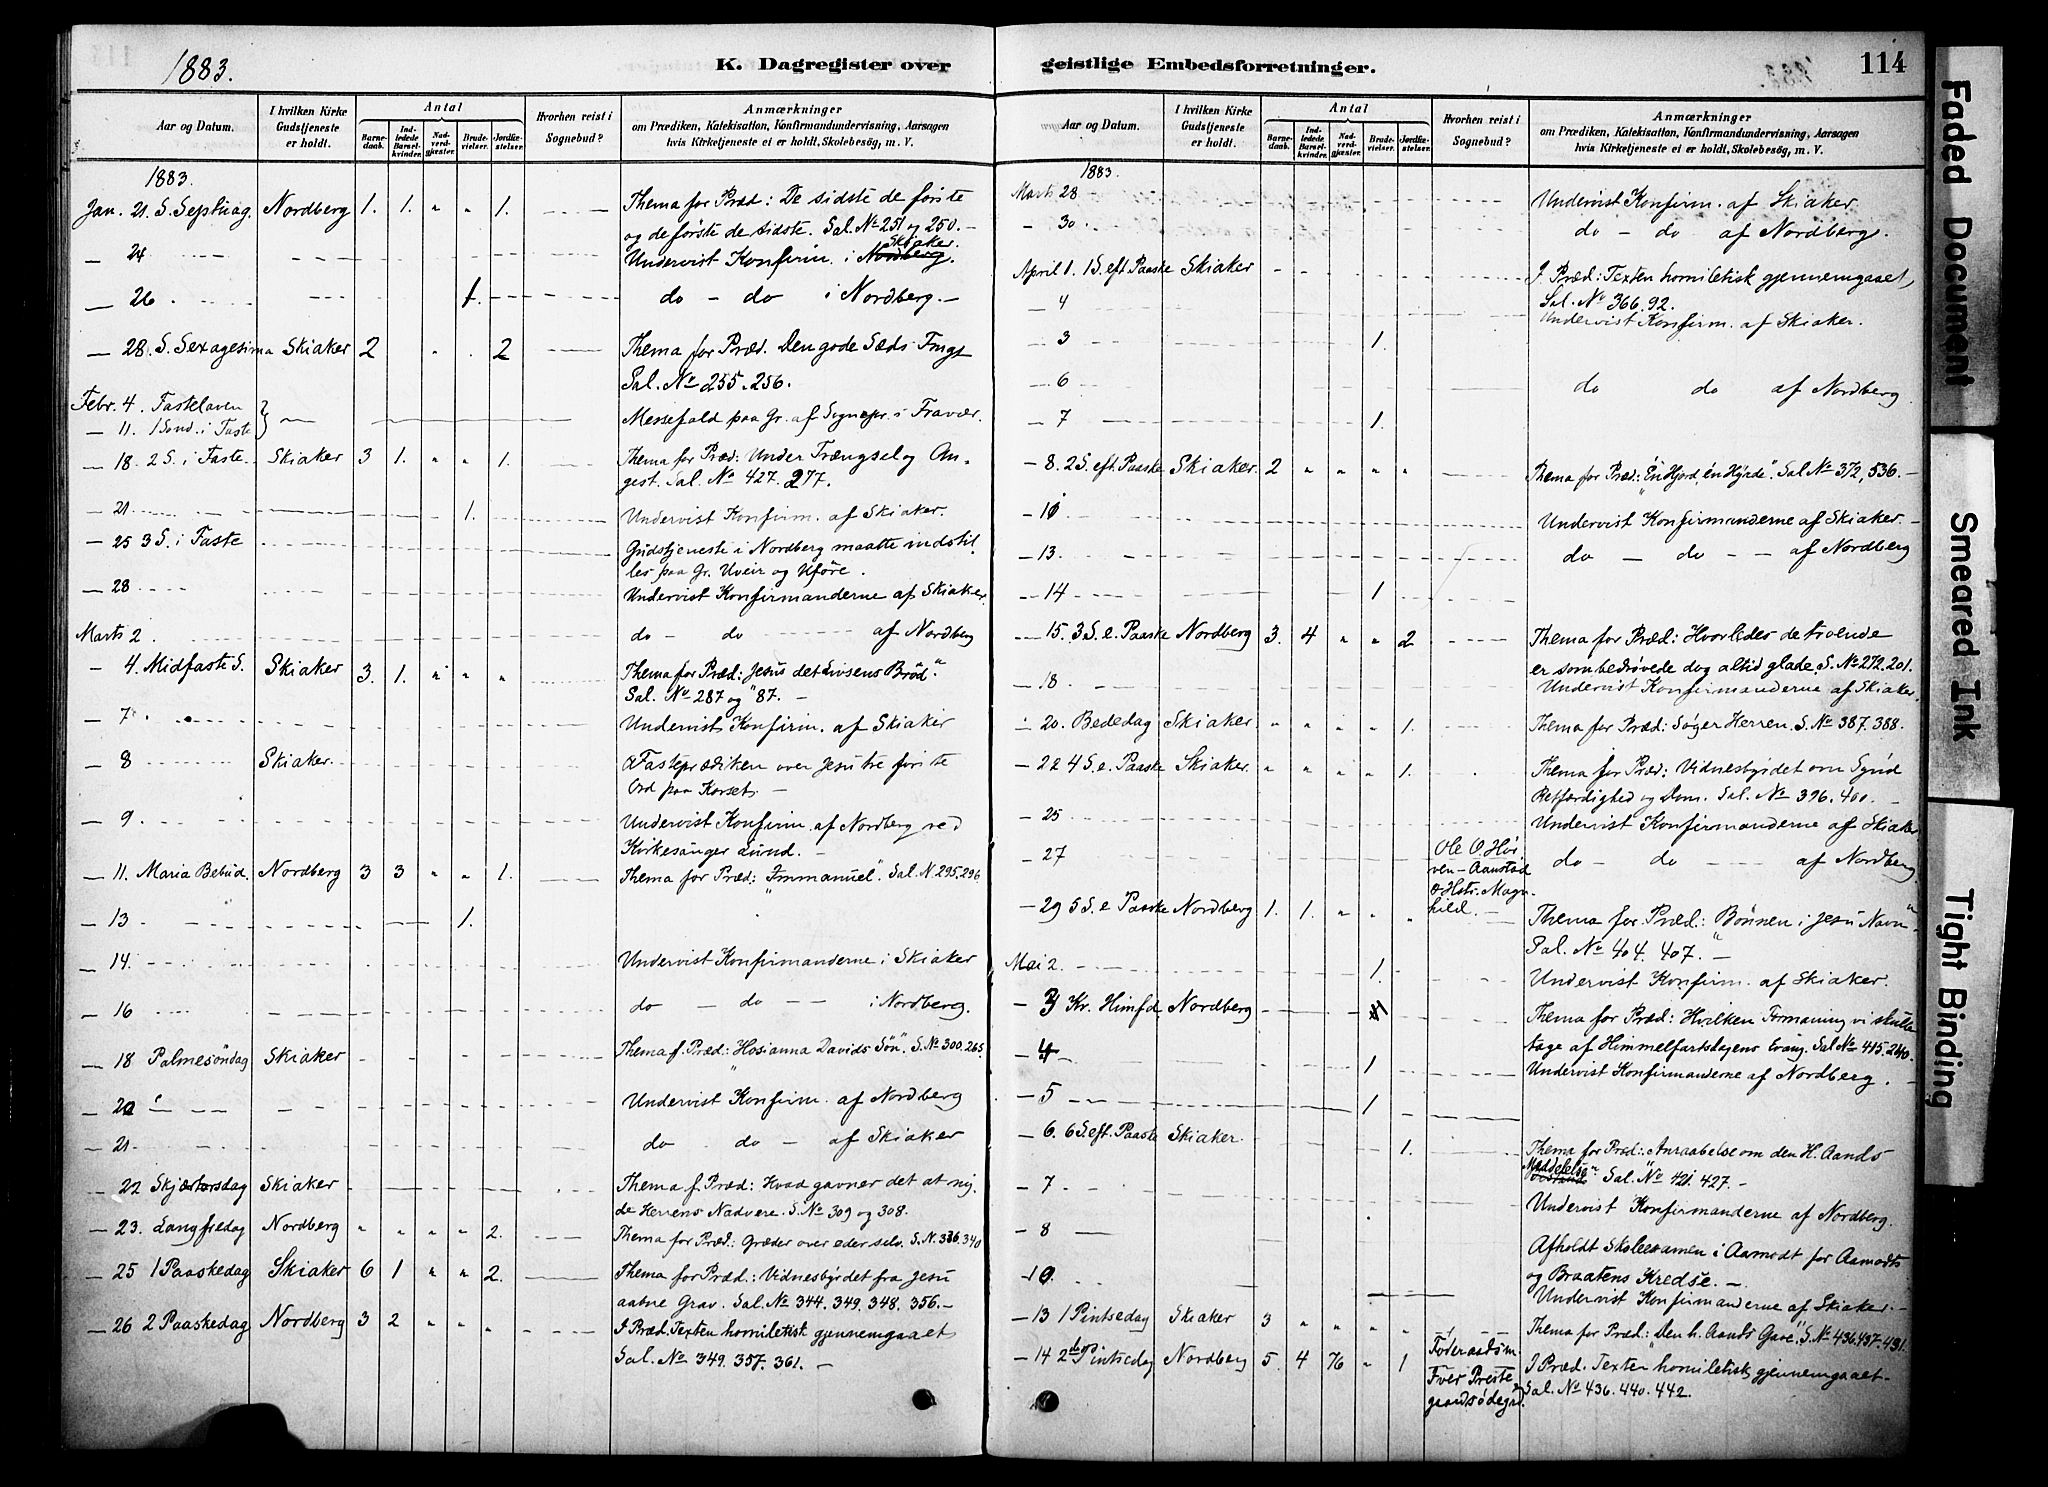 1883.
K. Dagregister over
Aar og Datum.
I hvilken Kirke Gudstjeneste er holdt.
Antal
Barnedaab.
Indledede Barselkvinder.
Nadverdgjæster.
Brudevielser.
Jordfæstelser.
Hvorhen reist i Sognebud?
Anmærkninger
om Prædiken, Katekisation, Konfirmandundervisning, Aarsagen
hvis Kirketjeneste ei er holdt, Skolebesög, m. V.
1883.
Jan. 21 S. Septuag. Nordberg 1. 1. " " 1. Thema for Præd: De sidste de første
og de første de sidste. Sal. No 251 og 250. -
- 24 Undervist Konfirm. i Nordberg. Skiaker.
- 26 1. do - do i Nordberg. -
- 28 S. Sexagesima Skiaker 2 " . 2 Thema for Præd. Den gode Sæds Frugt
Sal. No 255. 256.
Febr. 4. Fastelaven
- 11. 1 Sønd. i Faste Messefald paa Gr. af Sognepr. i Fravær.
- 18. 2 S. i Faste Skiaker 3 1. " " 1. Thema for Præd: Under Trængsel og An-
gest. Sal. No 427. 277.
- 21 1. Undervist Konfirm. af Skiaker.
- 25 3 S. i Faste Gudstjeneste i Nordberg maatte indstil-
les paa Gr. Uveir og Uføre.
- 28 Undervist Konfirmanderne af Skiaker.
Marts 2 do - do af Nordberg
- 4. Midfaste S. Skiaker 3. 1. " " " Thema for Præd: "Jesus det Livsens Brød".
Sal. No 287 og 87. -
- 7 Undervist Konfirm. af Skiaker
- 8 Skiaker. Fasteprædiken over Jesu tre første
Ord paa Korset. -
- 9 Undervist Konfirm. af Nordberg ved
Kirkesanger Lund. -
- 11. Maria Bebud. Nordberg 3 3 " " 1. Thema for Præd: "Immanuel". Sal. N. 295. 296
- 13 1.
- 14. Undervist Konfirmanderne i Skiaker
- 16 do - do - - i Nordberg.
- 18 Palmesöndag Skiaker Thema f. Præd: "Hosianna Davids Søn". S. No 300. 265.
- 20 Undervist Konfirm. af Nordberg
- 21 do do - af Skiaker
- 22 Skjærtorsdag Skiaker Thema f. Præd: Hvad gavner det at ny-
de Herrens Nadvere. S. No 309 og 308.
- 23. Langfredag Nordberg " " " " 2. Thema for Præd: Græder over eder selv. S. N. 336. 340
- 25 1 Paaskedag Skiaker 6 1 " " 2. Thema for Præd: Vidnesbyrdet fra Jesu
aabne Grav. Sal. No 344. 349. 348. 356. -
- 26 2 Paaskedag Nordberg 3 2 " " " I Præd. Texten homiletisk gjennemgaaet
Sal. No 349. 357. 361. -
geistlige Embedsforretninger.
114
Aar og Datum.
I hvilken Kirke Gudstjeneste er holdt.
Antal
Barnedaab.
Indledede Barselkvinder.
Nadverdgjæster.
Brudevielser.
Jordfæstelser.
Hvorhen reist i Sognebud?
Anmærkninger
om Prædiken, Katekisation, Konfirmandundervisning, Aarsagen
hvis Kirketjeneste ei er holdt, Skolebesög, m. V.
1883.
Marts 28 Undervist Konfirm. af Skiaker
- 30 do - do af Nordberg.
April 1. 1 S. eft. Paaske Skiaker I Præd: Texten homiletisk gjennemgaaet,
Sal. No 366. 92.
- 4 Undervist Konfirm. af Skiaker.
- 3 1.
- 6 do do af Nordberg
- 7 1.
- 8. 2 S. eft. Paaske Skiaker. 2 " " " " Thema for Præd: "Én Hjord, én Hyrde". Sal. No 372, 536. -
- 11 Undervist Konfirmanderne af Skiaker. -
- 13. do - do - - af Nordberg
- 14 1
- 15. 3 S. e. Paaske Nordberg 3. 4 " " 2 Thema for Præd: Hvorledes de troende
er som bedrøvede dog altid glade. S. No 272. 201.
- 18 Undervist Konfirmanderne af Skiaker.
- 20. Bededag Skiaker " " " " 1. Thema for Præd: Søger Herren. S. No 387. 388.
- 22 4 S. e. Paaske Skiaker. " " " " 1. Thema for Præd: Vidnesbyrdet om Synd
Retfærdighed og Dom. Sal. No 396. 400. -
- 25 Undervist Konfirmanderne af Skiaker
- 27 Ole O. Hør-
ven - Aanstad
Hstr. Magn-
hild. do - do af Nordberg
- 29 5 S. e Paaske Nordberg 1. 1. " " " Thema for Præd: "Bønnen i Jesu Navn" -
Sal. No 404. 407. -
Mai 2. 1. Undervist Konfirm. af Skiaker.
- 3 Kr. Himfd. Nordberg 1 Thema for Præd: Hvilken Formaning vi skulle
tage af Himmelfartsdagens Evang. Sal No 415. 240.
- 4 1 Undervist Konfirmanderne af Nordberg. -
- 5 1
- 6. 6 S. eft. Paaske Skiaker. 1. Thema for Præd: "Anraabelse om den H. Aands
Meddelelse" Sal. No 421. 427. -
- 7 Undervist Konfirmanderne af Nordberg.
- 8 Afholdt Skoleexamen i Aamodt for Aamodts
og Braatens Kredse. -
- 10. Undervist Konfirmanderne af Skiaker. -
- 13 1 Pintsedag Skiaker 3 " " " " Thema for Præd: "Den h. Aands Gave". S. No 436. 437. 431.
- 14 2den Pintsedag Nordberg 5. 4 76 " 1 Føderaadsm.
Iver Preste-
gaardsødegrd. I Præd. Texten homiletisk gjennemgaaet.
Sal. No 436. 440. 442.
Faded Document
Smeared Ink
Tight Binding